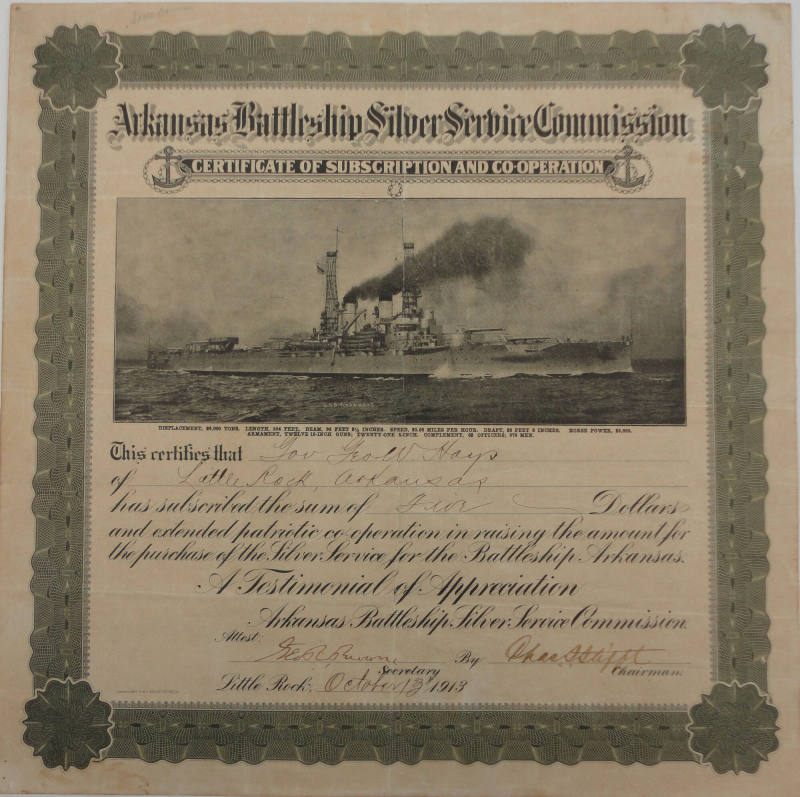 Arkansas Battleship Silver Service Commission
CERTIFICATE OF SUBSCRIPTION AND CO-OPERATION
DISPLACEMENT, 26,000 TONS. LENGTH, FEET, BEAM, 93 FEET 2½ INCHES. SPEED, MILES PER HOUR. DRAFT, 28 FEET 6 INCHES. HORSE POWER,
ARMAMENT, TWELVE 12-INCH GUNS; TWENTY-ONE 5-INCH. COMPLEMENT, OFFICERS; MEN.
This certifies that Gov Geo W Hays
of Little Rock, Arkansas
has subscribed the sum of Five Dollars
and extended patriotic co-operation in raising the amount for
the purchase of the Silver Service for the Battleship Arkansas.
A Testimonial of Appreciation
Arkansas Battleship Silver Service Commission.
Attest:
Geo R By Chas
Secretary Chairman.
Little Rock, October 13th 1913